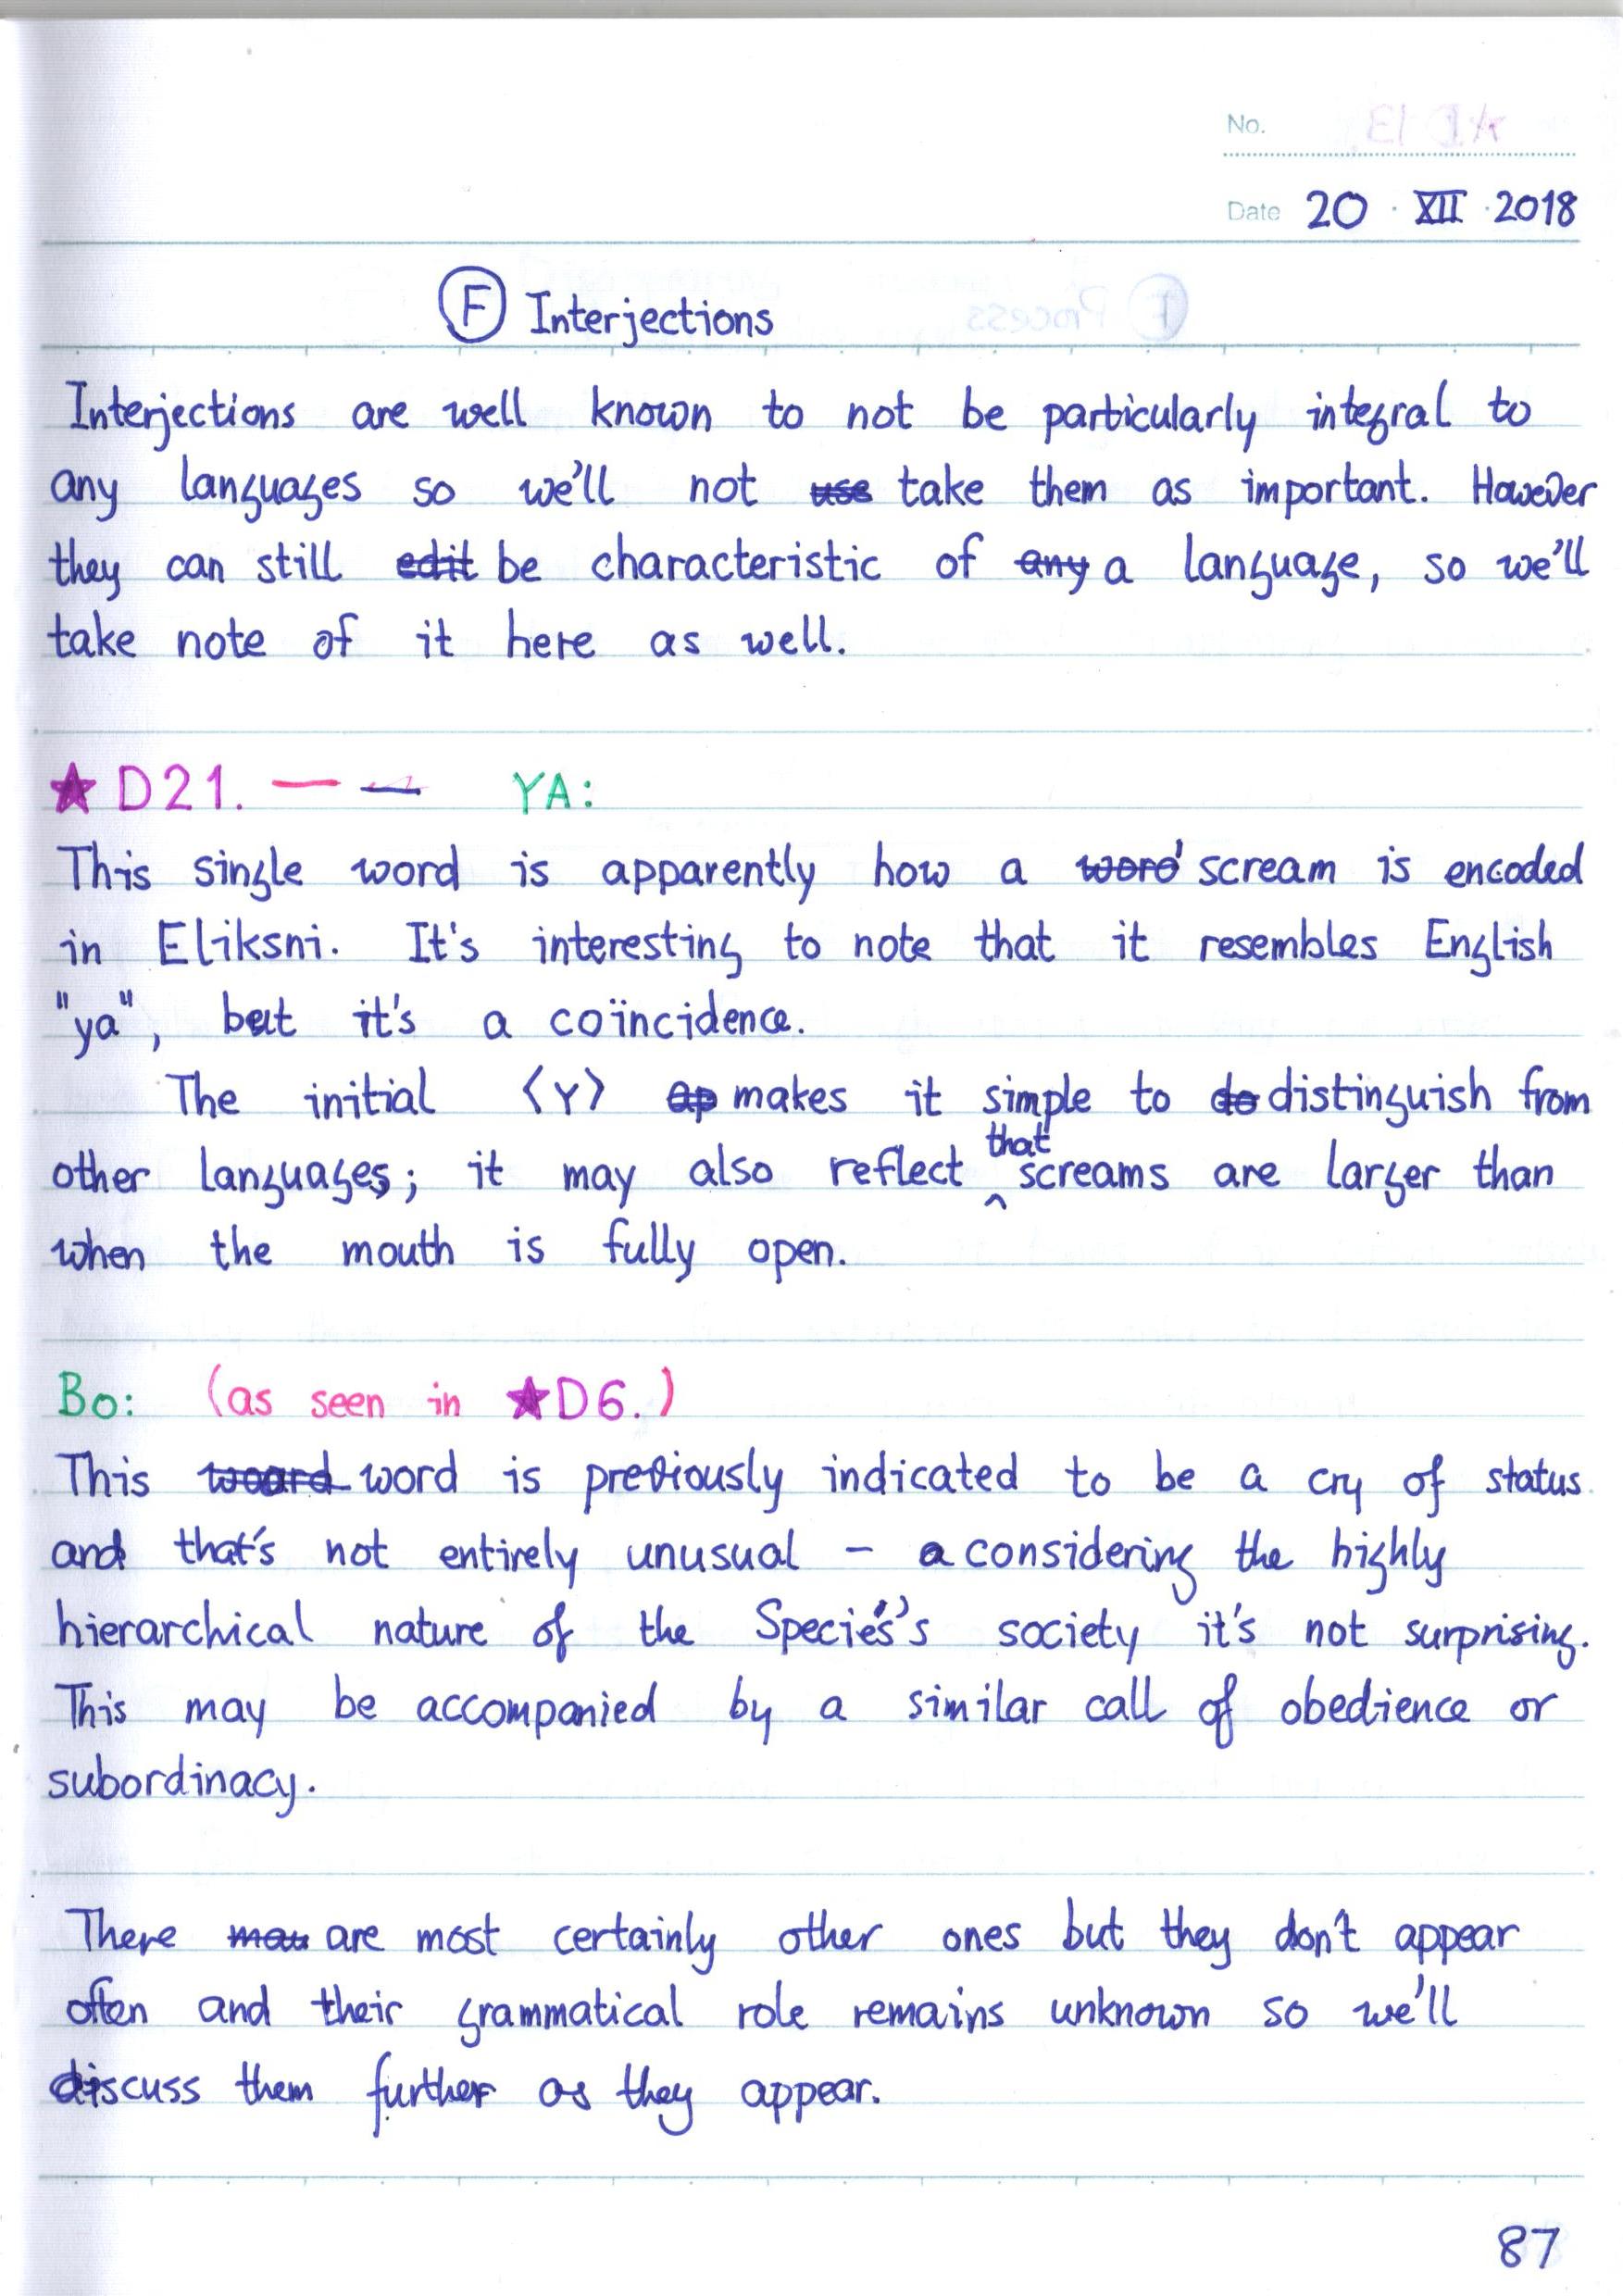 No.
Date 20 · XII · 2018
F Interjections
Interjections are well known to not be particularly integral to
any languages so we'll not use take them as important. However
they can still edit be characteristic of any a language, so we'll
take note of it here as well.
★D21. — — YA:
This single word is apparently how a word scream is encoded
in Eliksni. It's interesting to note that it resembles English
"ya", but it's a coïncidence.
The initial ⟨Y⟩ ap makes it simple to do distinguish from
other languages; it may also reflect that screams are larger than
when the mouth is fully open.
Bo: (as seen in ★D6.)
This woard word is previously indicated to be a cry of status
and that's not entirely unusual – a considering the highly
hierarchical nature of the Species's society it's not surprising.
This may be accompanied by a similar call of obedience or
subordinacy.
There mau are most certainly other ones but they don't appear
often and their grammatical role remains unknown so we'll
discuss them further as they appear.
87